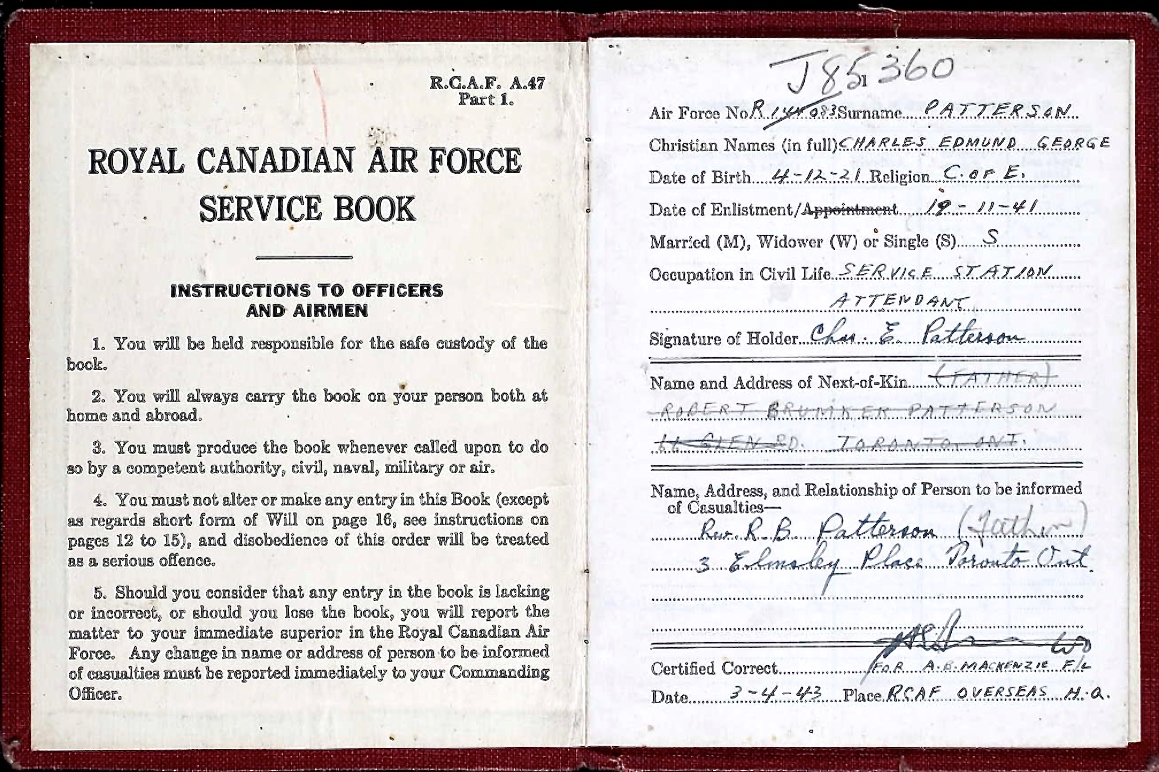 R.C.A.F. A.47
Part 1.
ROYAL CANADIAN AIR FORCE
SERVICE BOOK
INSTRUCTIONS TO OFFICERS
AND AIRMEN
1. You will be held responsible for the safe custody of the
book.
2. You will always carry the book on your person both at
home and abroad.
3. You must produce the book whenever called upon to do
so by a competent authority, civil, naval, military or air.
4. You must not alter or make any entry in this Book (except
as regards short form of Will on page 16, see instructions on
pages 12 to 15), and disobedience of this order will be treated
as a serious offence.
5. Should you consider that any entry in the book is lacking
or incorrect, or should you lose the book, you will report the
matter to your immediate superior in the Royal Canadian Air
Force. Any change in name or address of person to be informed
of casualties must be reported immediately to your Commanding
Officer.
J85360
Air Force No R 144083 Surname PATTERSON
Christian Names (in full) CHARLES EDMUND GEORGE
Date of Birth 4-12-21 Religion C. OF E.
Date of Enlistment/Appointment 19-11-41
Married (M), Widower (W) or Single (S) S
Occupation in Civil Life SERVICE STATION
ATTENDANT
Signature of Holder Chas. E. Patterson
Name and Address of Next-of-Kin (FATHER)
ROBERT PATTERSON
GLEN RD. TORONTO ONT.
Name, Address, and Relationship of Person to be informed
of Casualties—
Rev. R. B. Patterson (Father)
3 Elmsley Place Toronto Ont.
WO
Certified Correct FOR A.B. MACKENZIE F/L
Date 3-4-43 Place RCAF OVERSEAS H.Q.